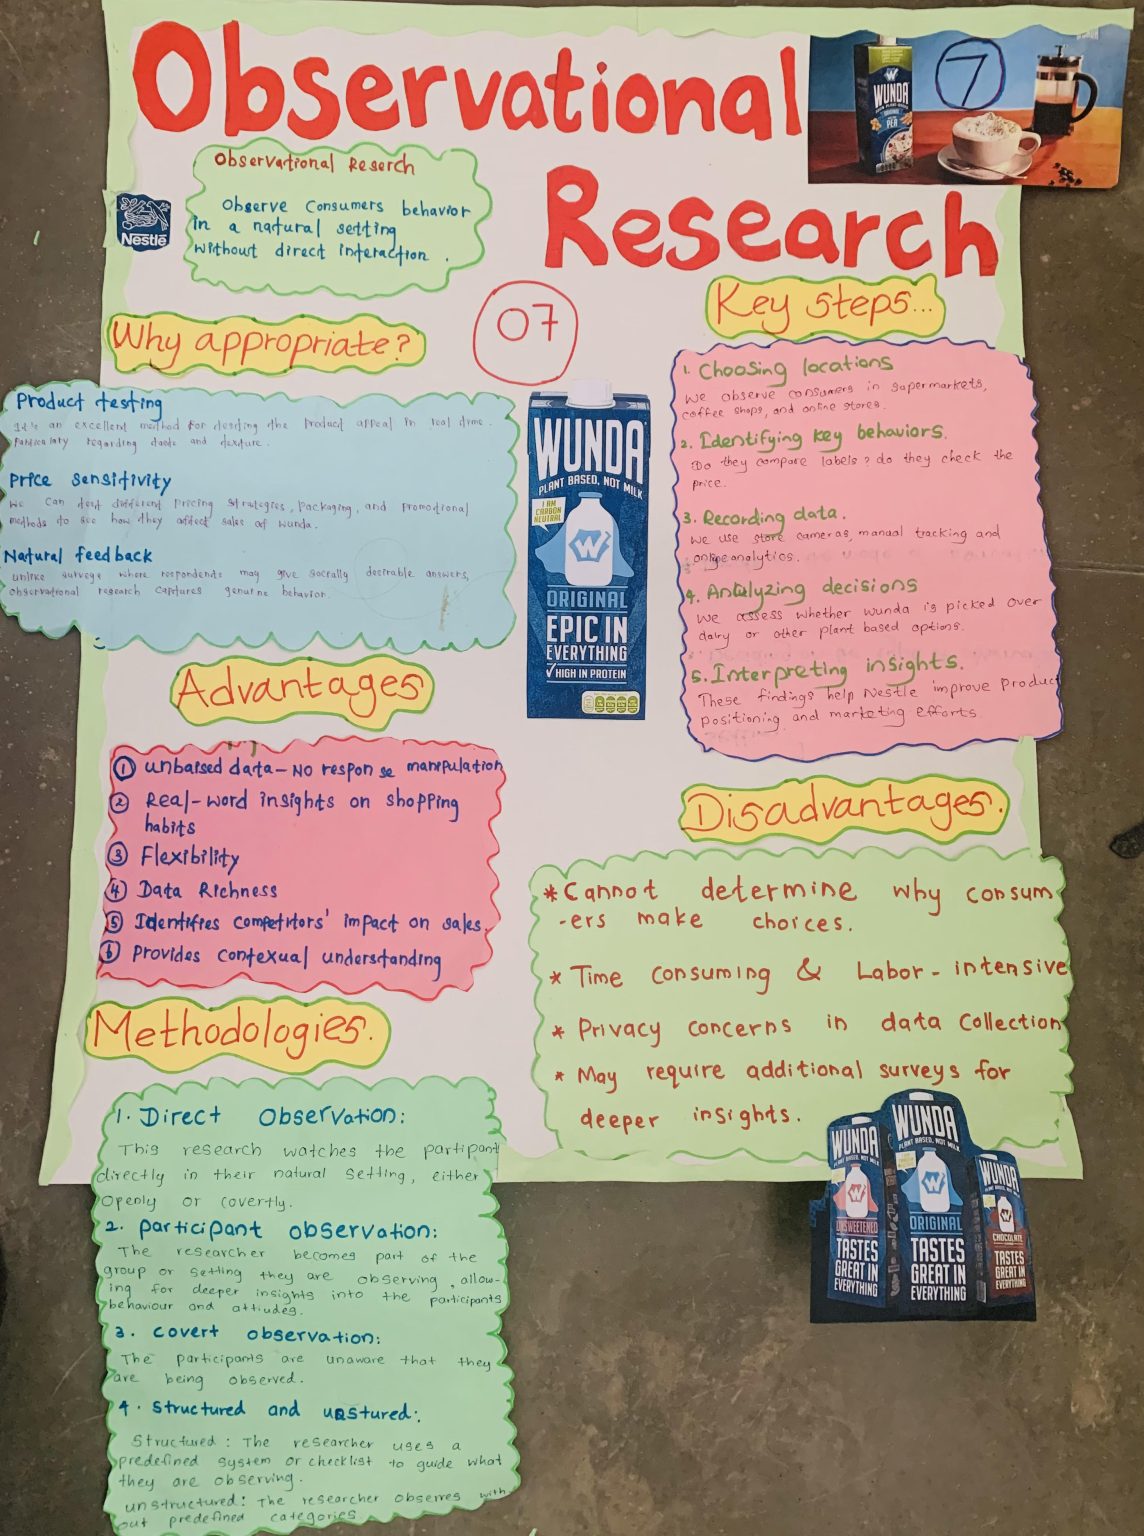 Observational
Research
WUNDA
PEA
7
Observational Reserch
Observe Consumers behavior
in a natural setting
without direct interaction .
Nestlé
07
Why appropriate?
Product testing
It's an excellent method for testing the Product appeal in real time.
regarding taste and texture.
Price sensitivity
We can test different pricing strategies, packaging, and promotional
methods to see how they affect sales of wunda.
Natural feedback
unlike surveys where respondents may give socially desirable answers,
observational research captures genuine behavior.
Key steps...
1. Choosing locations
We observe consumers in supermarkets,
coffee shops, and online stores.
2. Identifying key behaviors.
Do they compare labels? do they check the
price.
3. Recording data.
We use store cameras, manual tracking and
online analytics.
4. Analyzing decisions
We assess whether wunda is picked over
dairy or other plant based options.
5. Interpreting insights.
These findings help Nestle improve Product
positioning and marketing efforts.
WUNDA
PLANT BASED, NOT MILK
I AM
CARBON
NEUTRAL
W
ORIGINAL
EPIC IN
EVERYTHING
✓ HIGH IN PROTEIN
Advantages
1 unbaised data - No response manipulation
2 Real-word insights on shopping
habits
3 Flexibility
4 Data Richness
5 Identifies competitors' impact on sales.
6 Provides contexual understanding
Disadvantages.
* Cannot determine why consum
-ers make choices.
* Time consuming & Labor-intensive
* Privacy concerns in data collection
* May require additional surveys for
deeper insights.
Methodologies.
1. Direct observation:
This research watches the participant
directly in their natural setting, either
openly or covertly.
2. participant observation:
The researcher becomes part of the
group or setting they are observing, allow-
ing for deeper insights into the participants
behaviour and attiudes.
3. covert observation:
The participants are unaware that they
are being observed.
4. structured and unstured:
Structured: The researcher uses a
predefined system or checklist to guide what
they are observing.
unstructured: The researcher observes with
out predefined categories
WUNDA
PLANT BASED, NOT MILK
UNSWEETENED
TASTES
GREAT IN
EVERYTHING
WUNDA
PLANT BASED, NOT MILK
W
ORIGINAL
TASTES
GREAT IN
EVERYTHING
WUNDA
CHOCOLATE
TASTES
GREAT IN
EVERYTHING